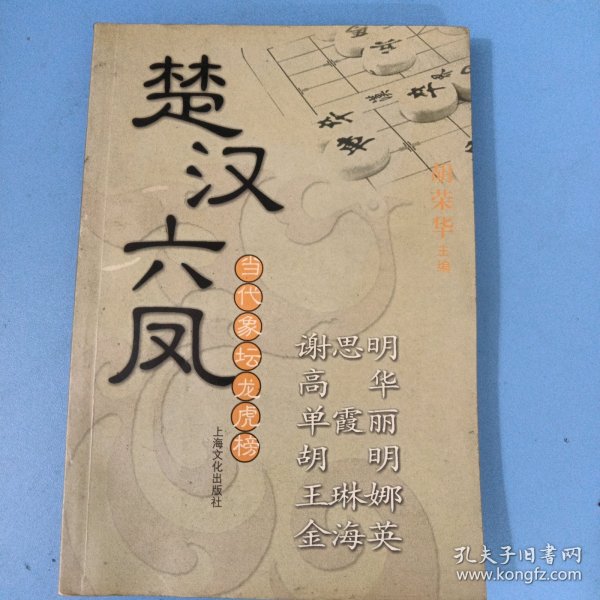 楚汉六凤
胡荣华
主编
当代象坛龙虎榜
谢思明
高华
单霞丽
胡明
王琳娜
金海英
上海文化出版社
孔夫子旧书网
www.kongfz.com